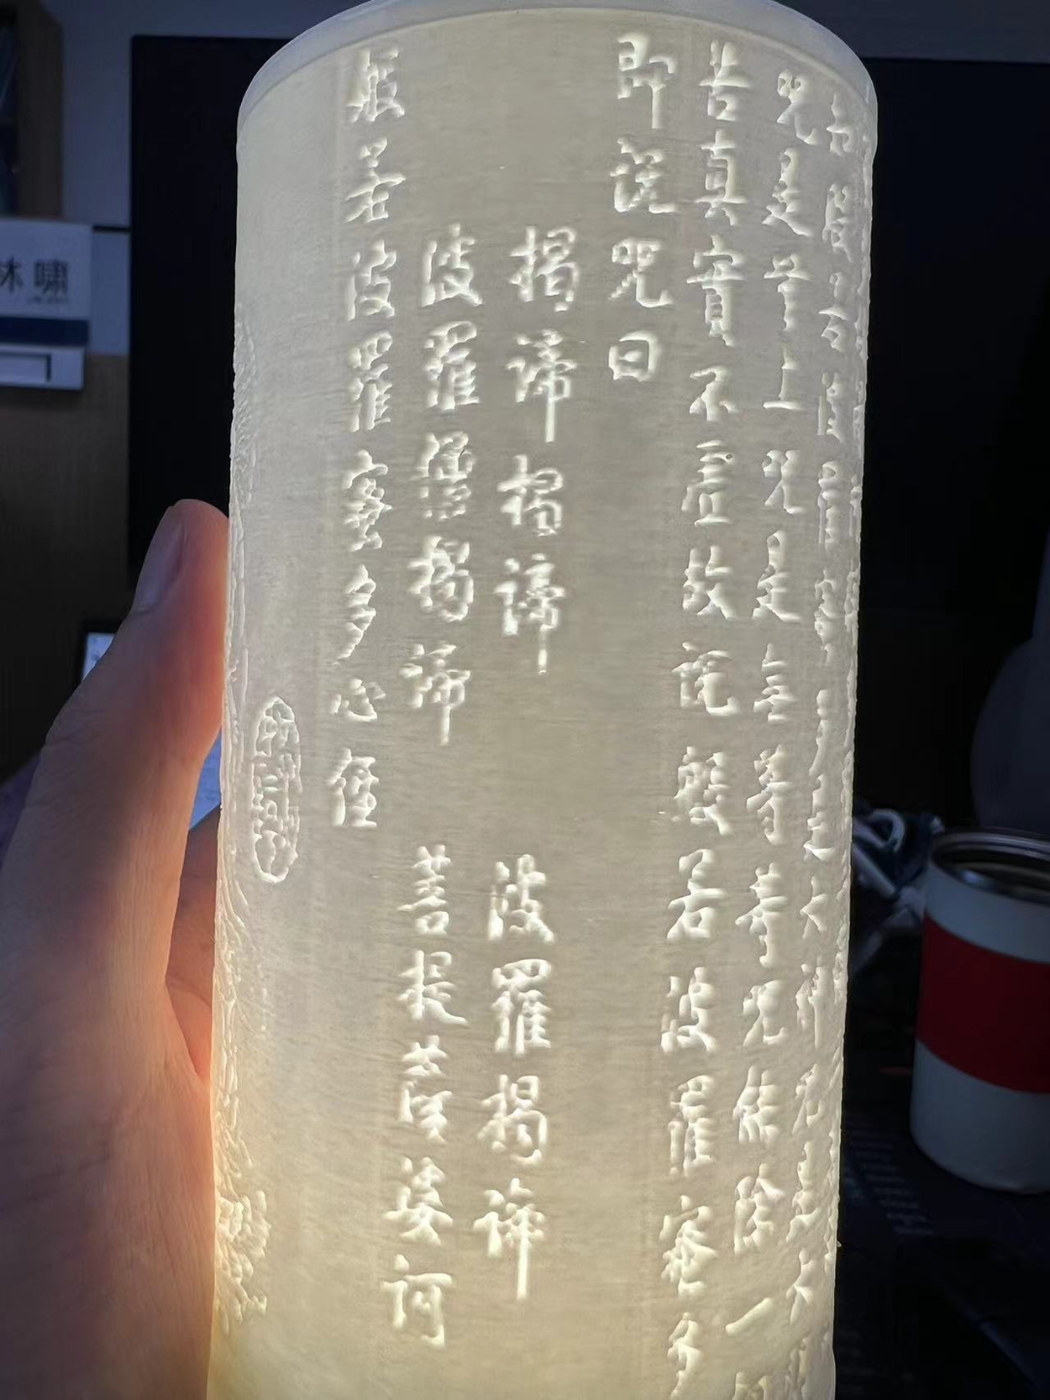 般若波羅蜜多是大神咒是大
咒是無上咒是無等等咒能除一切
苦真實不虛故說般若波羅蜜多
即說咒曰
揭諦揭諦 波羅揭諦
波羅僧揭諦 菩提薩婆訶
般若波羅蜜多心經
啸